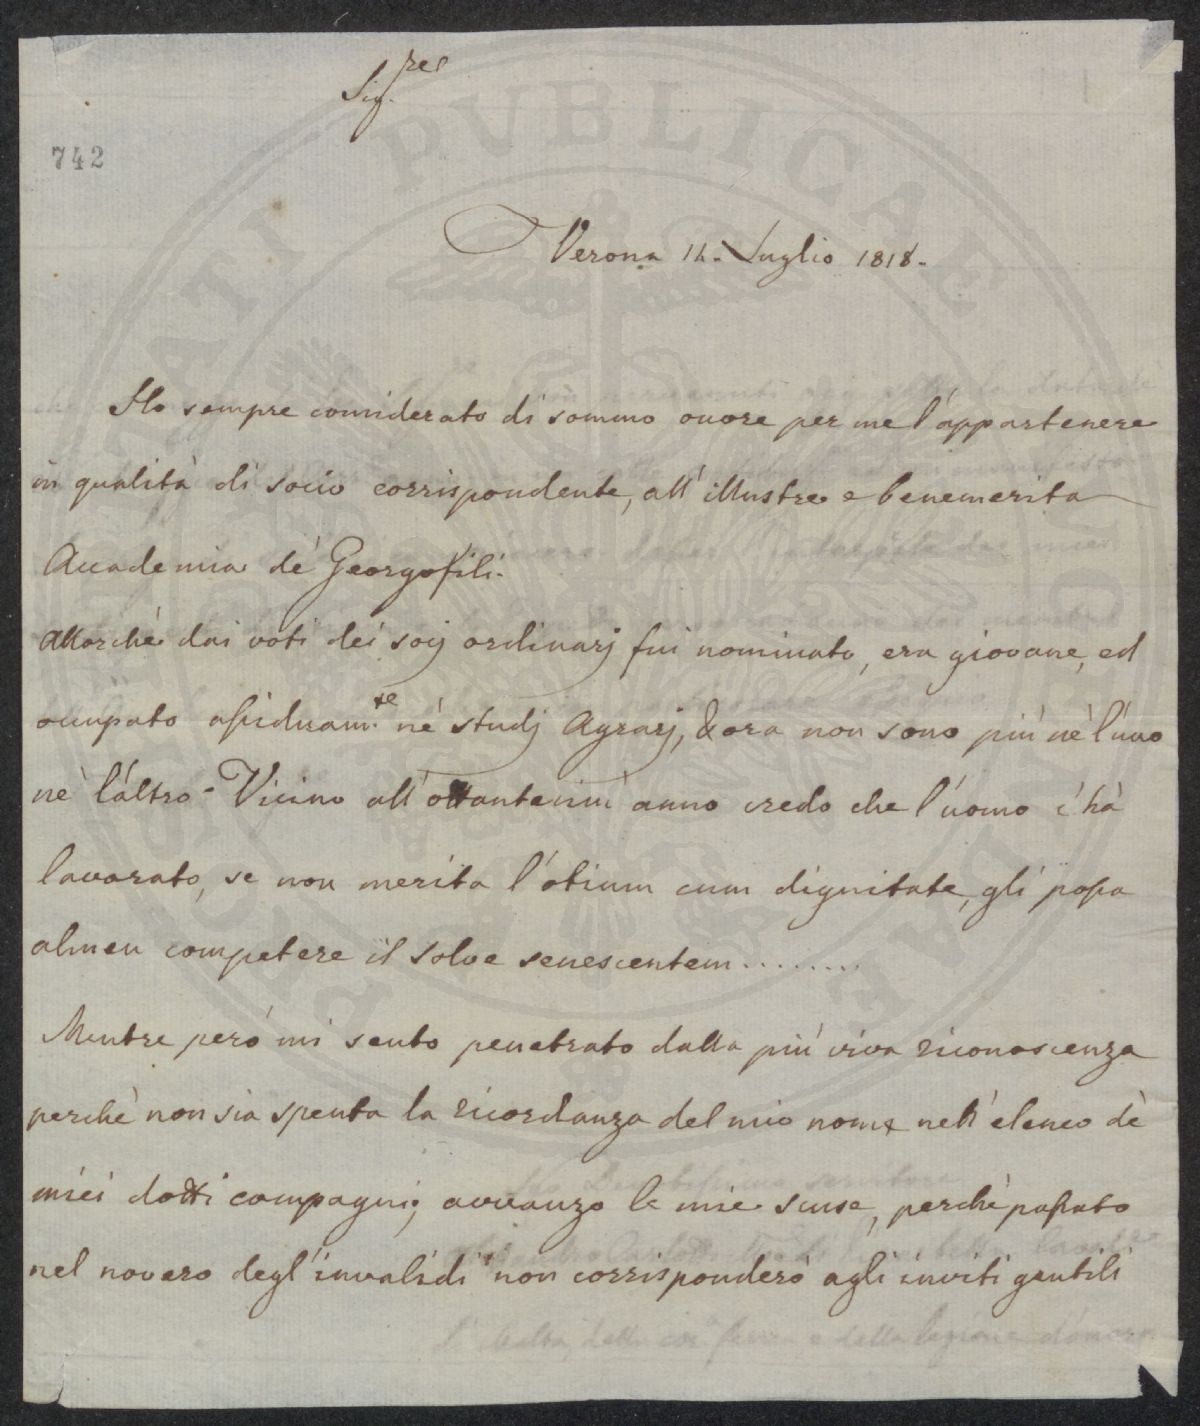 Sig.re
742
Verona 14. Luglio 1818.
Ho sempre considerato di sommo onore per me l'appartenere
in qualità di socio corrispondente, all'illustre e benemerita
Accademia de' Georgofili.
Allorchè dai voti dei socj ordinarj fui nominato, era giovane, ed
occupato assiduam.te nè studj Agrarj, & ora non sono più nè l'uno
nè l'altro - Vicino all' anno credo che l'uomo c'hà
lavorato, se non merita l'otium cum dignitate, gli possa
almen competere il solve senescentem........
Mentre però mi sento penetrato dalla più viva riconoscenza
perchè non sia spenta la ricordanza del mio nome nell'elenco dè
miei dotti compagni; avvanzo le mie scuse, perchè passato
nel novero degl'invalidi non corrisponderò agli inviti gentili